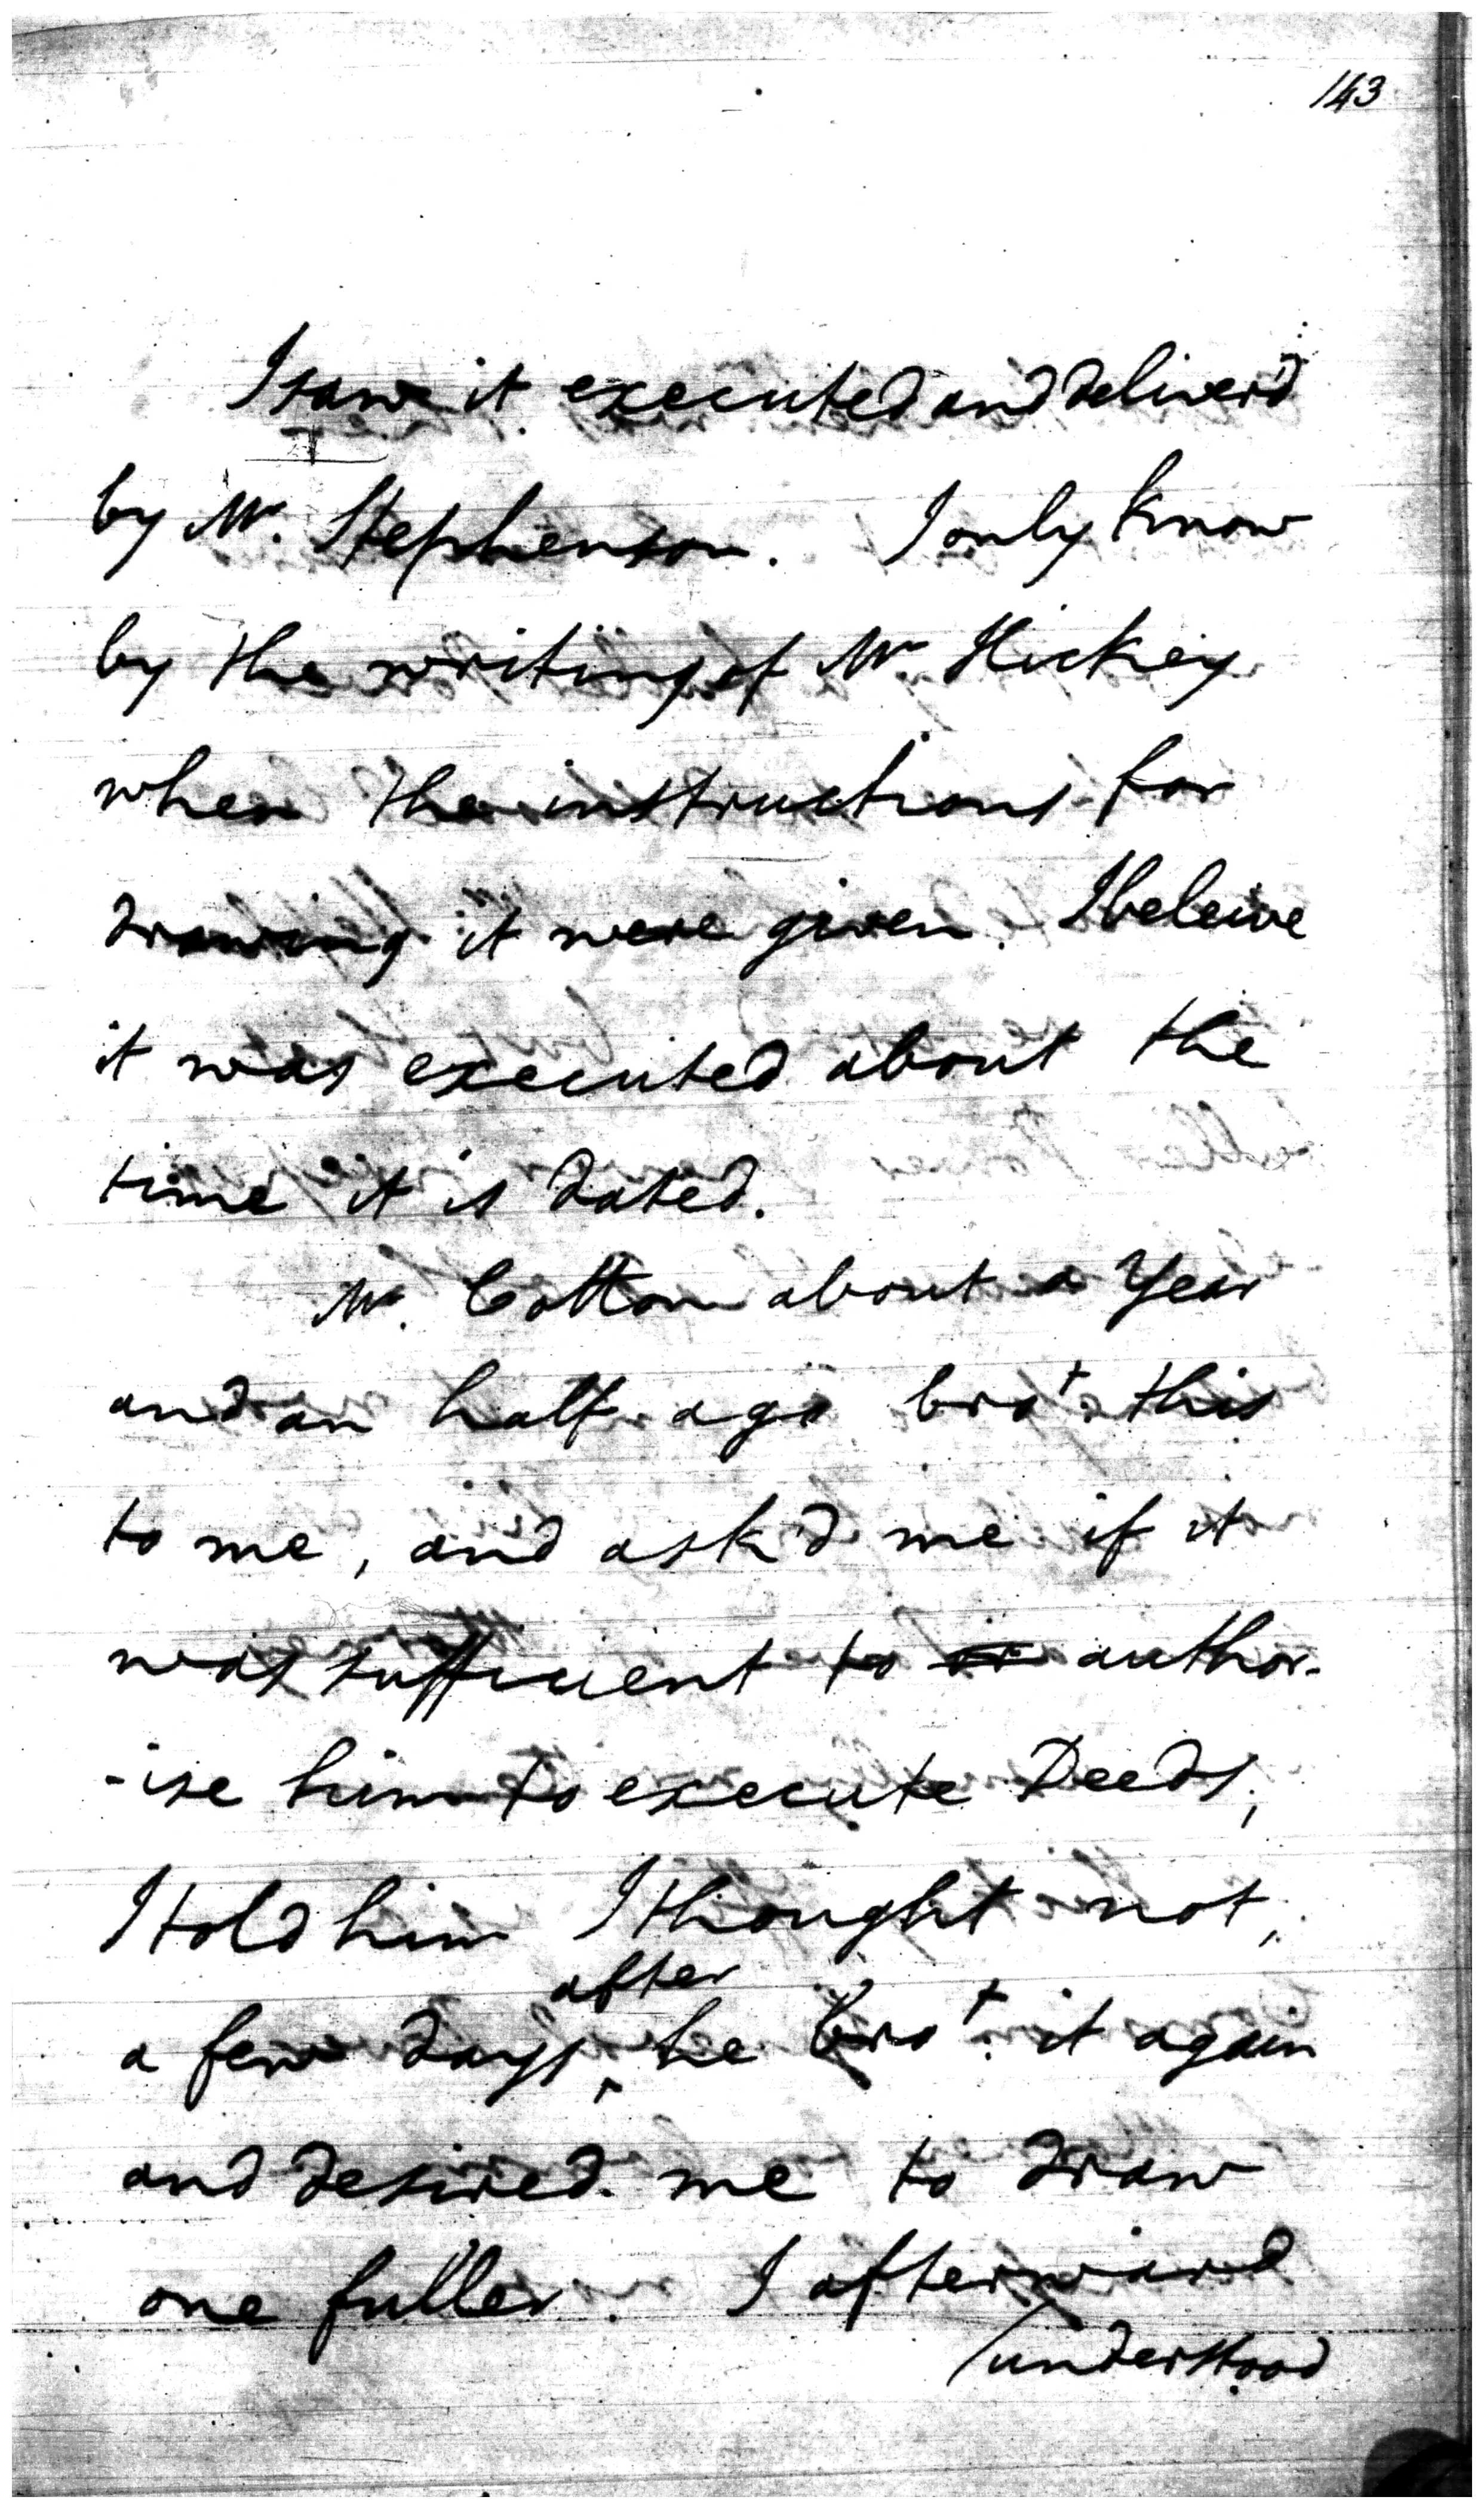 143
I saw it executed and deliver'd
by Mr. Stephenson. I only know
by the writing of Mr Hickey
when the instructions for
drawing it were given. I beleive
it was executed about the
time it is dated.
Mr. Cotton about a Year
and an half ago bro^t. this
to me, and ask'd me if it
was sufficient to author-
-ise him to execute Deeds,
I told him I thought not,
after
a few days ^ he bro^t. it again
and desired me to draw
one fuller. I afterward
/understood